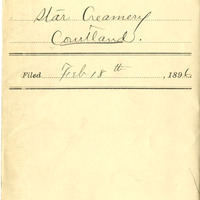 Star Creamery
Courtland.
Filed Feb 18th, 1896.